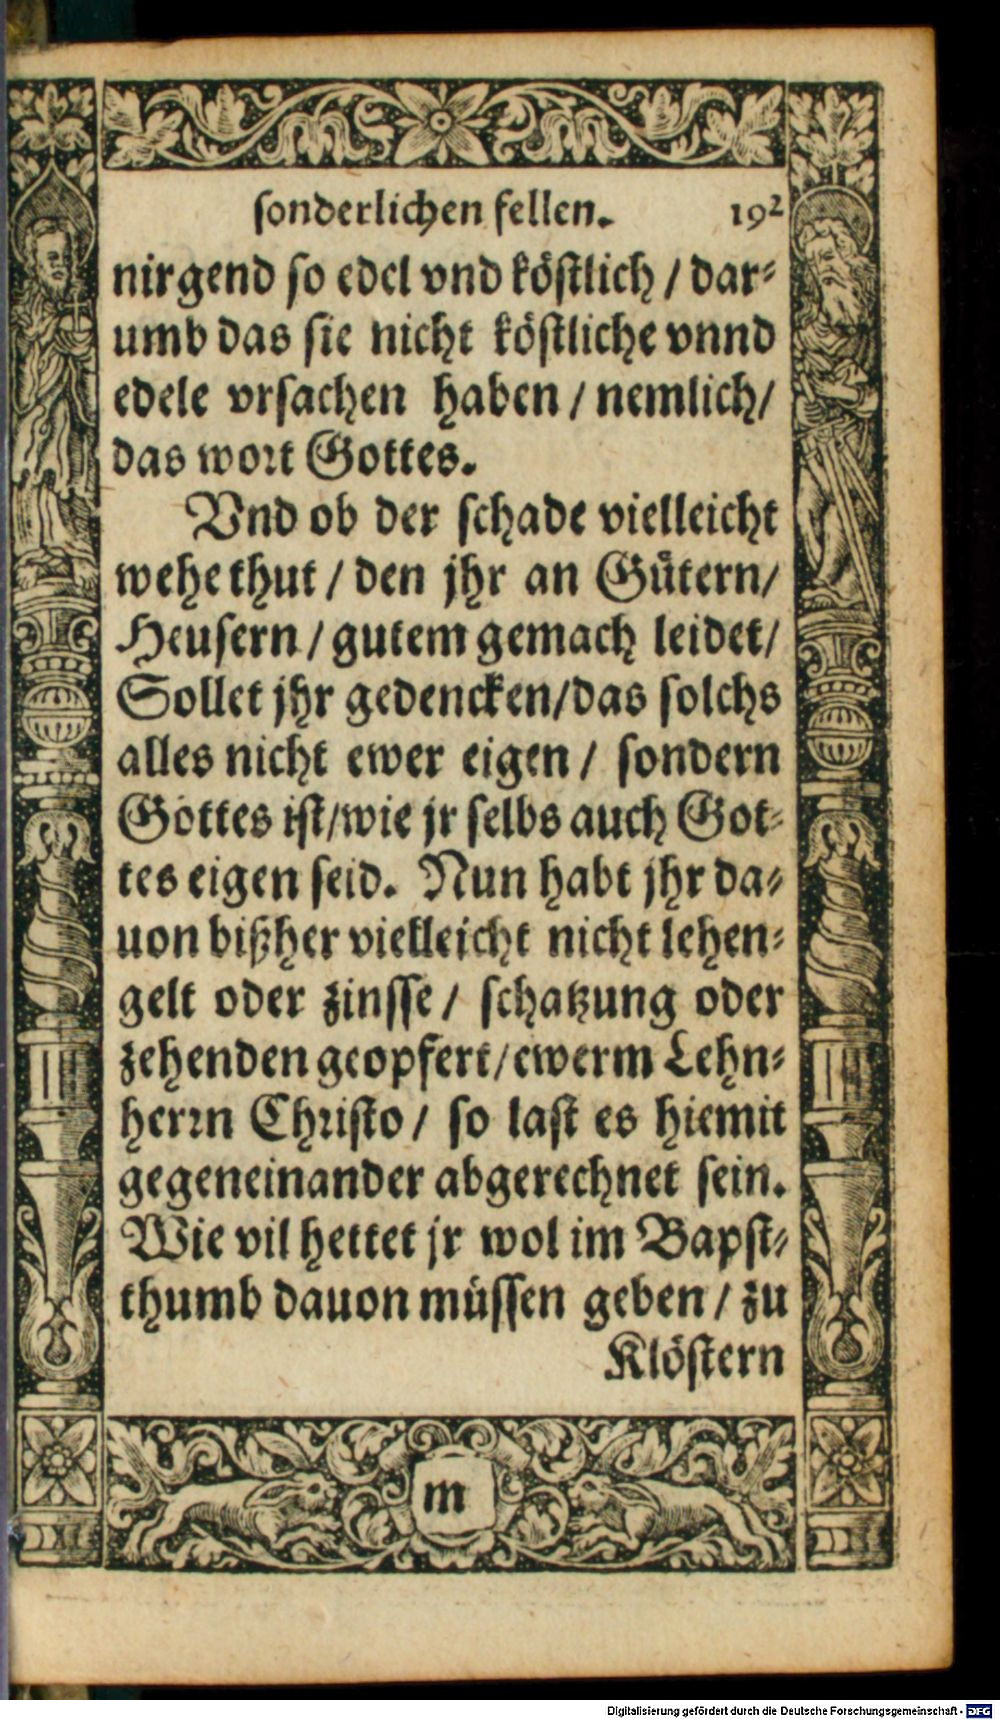 sonderlichen fellen. 192
nirgend so edel vnd köstlich / dar⸗
umb das sie nicht köstliche vnnd
edele vrsachen haben / nemlich /
das wort Gottes.
Vnd ob der schade vielleicht
wehe thut / den jhr an Gütern /
Heusern / gutem gemach leidet /
Sollet jhr gedencken / das solchs
alles nicht ewer eigen / sondern
Gottes ist / wie jr selbs auch Got⸗
tes eigen seid. Nun habt jhr da⸗
uon bißher vielleicht nicht lehen⸗
gelt oder zinsse / schatzung oder
zehenden geopfert / ewerm Lehn⸗
herrn Christo / so last es hiemit
gegeneinander abgerechnet sein.
Wie vil hettet jr wol im Bapst⸗
thumb dauon müssen geben / zu
Klöstern
m
Digitalisierung gefördert durch die Deutsche Forschungsgemeinschaft - DFG